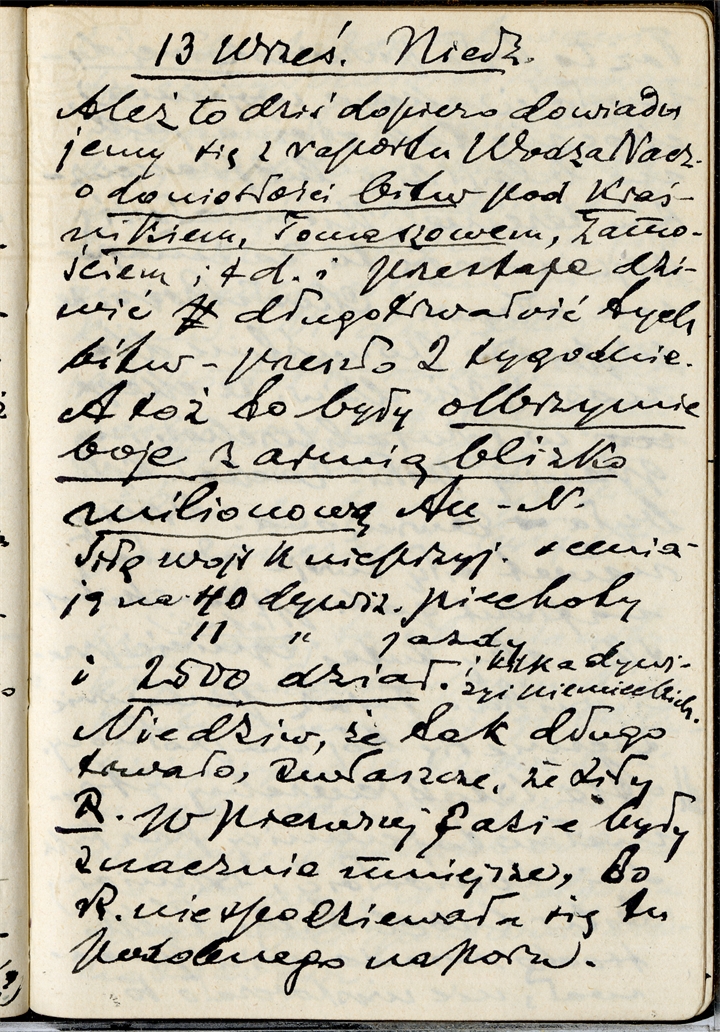 13 Wrześ. Niedz.
Ależ to dziś dopiero dowiadu
jemy się z raportu Wodza Nacz.
o doniosłości bitw pod Kraś-
nikiem, Tomaszowem, Zamo-
ściem i t d. i przestaję dzi-
wić długotrwałość tych
bitw - przeszło 2 tygodnie.
A toż to były olbrzymie
boje z armią blizko
milionową Au-N.
Siłę wojsk nieprzyj. ocenia-
ją na 40 dywiz. piechoty
11 " jazdy
i 2500 dział. i kilka dywi-
zyi niemieckich.
Niedziw, że tak długo
trwało, zwłaszcza, że siły
R. w pierwszej fazie były
znacznie mniejsze, bo
R. niespodziewała się tu
podobnego naporu.